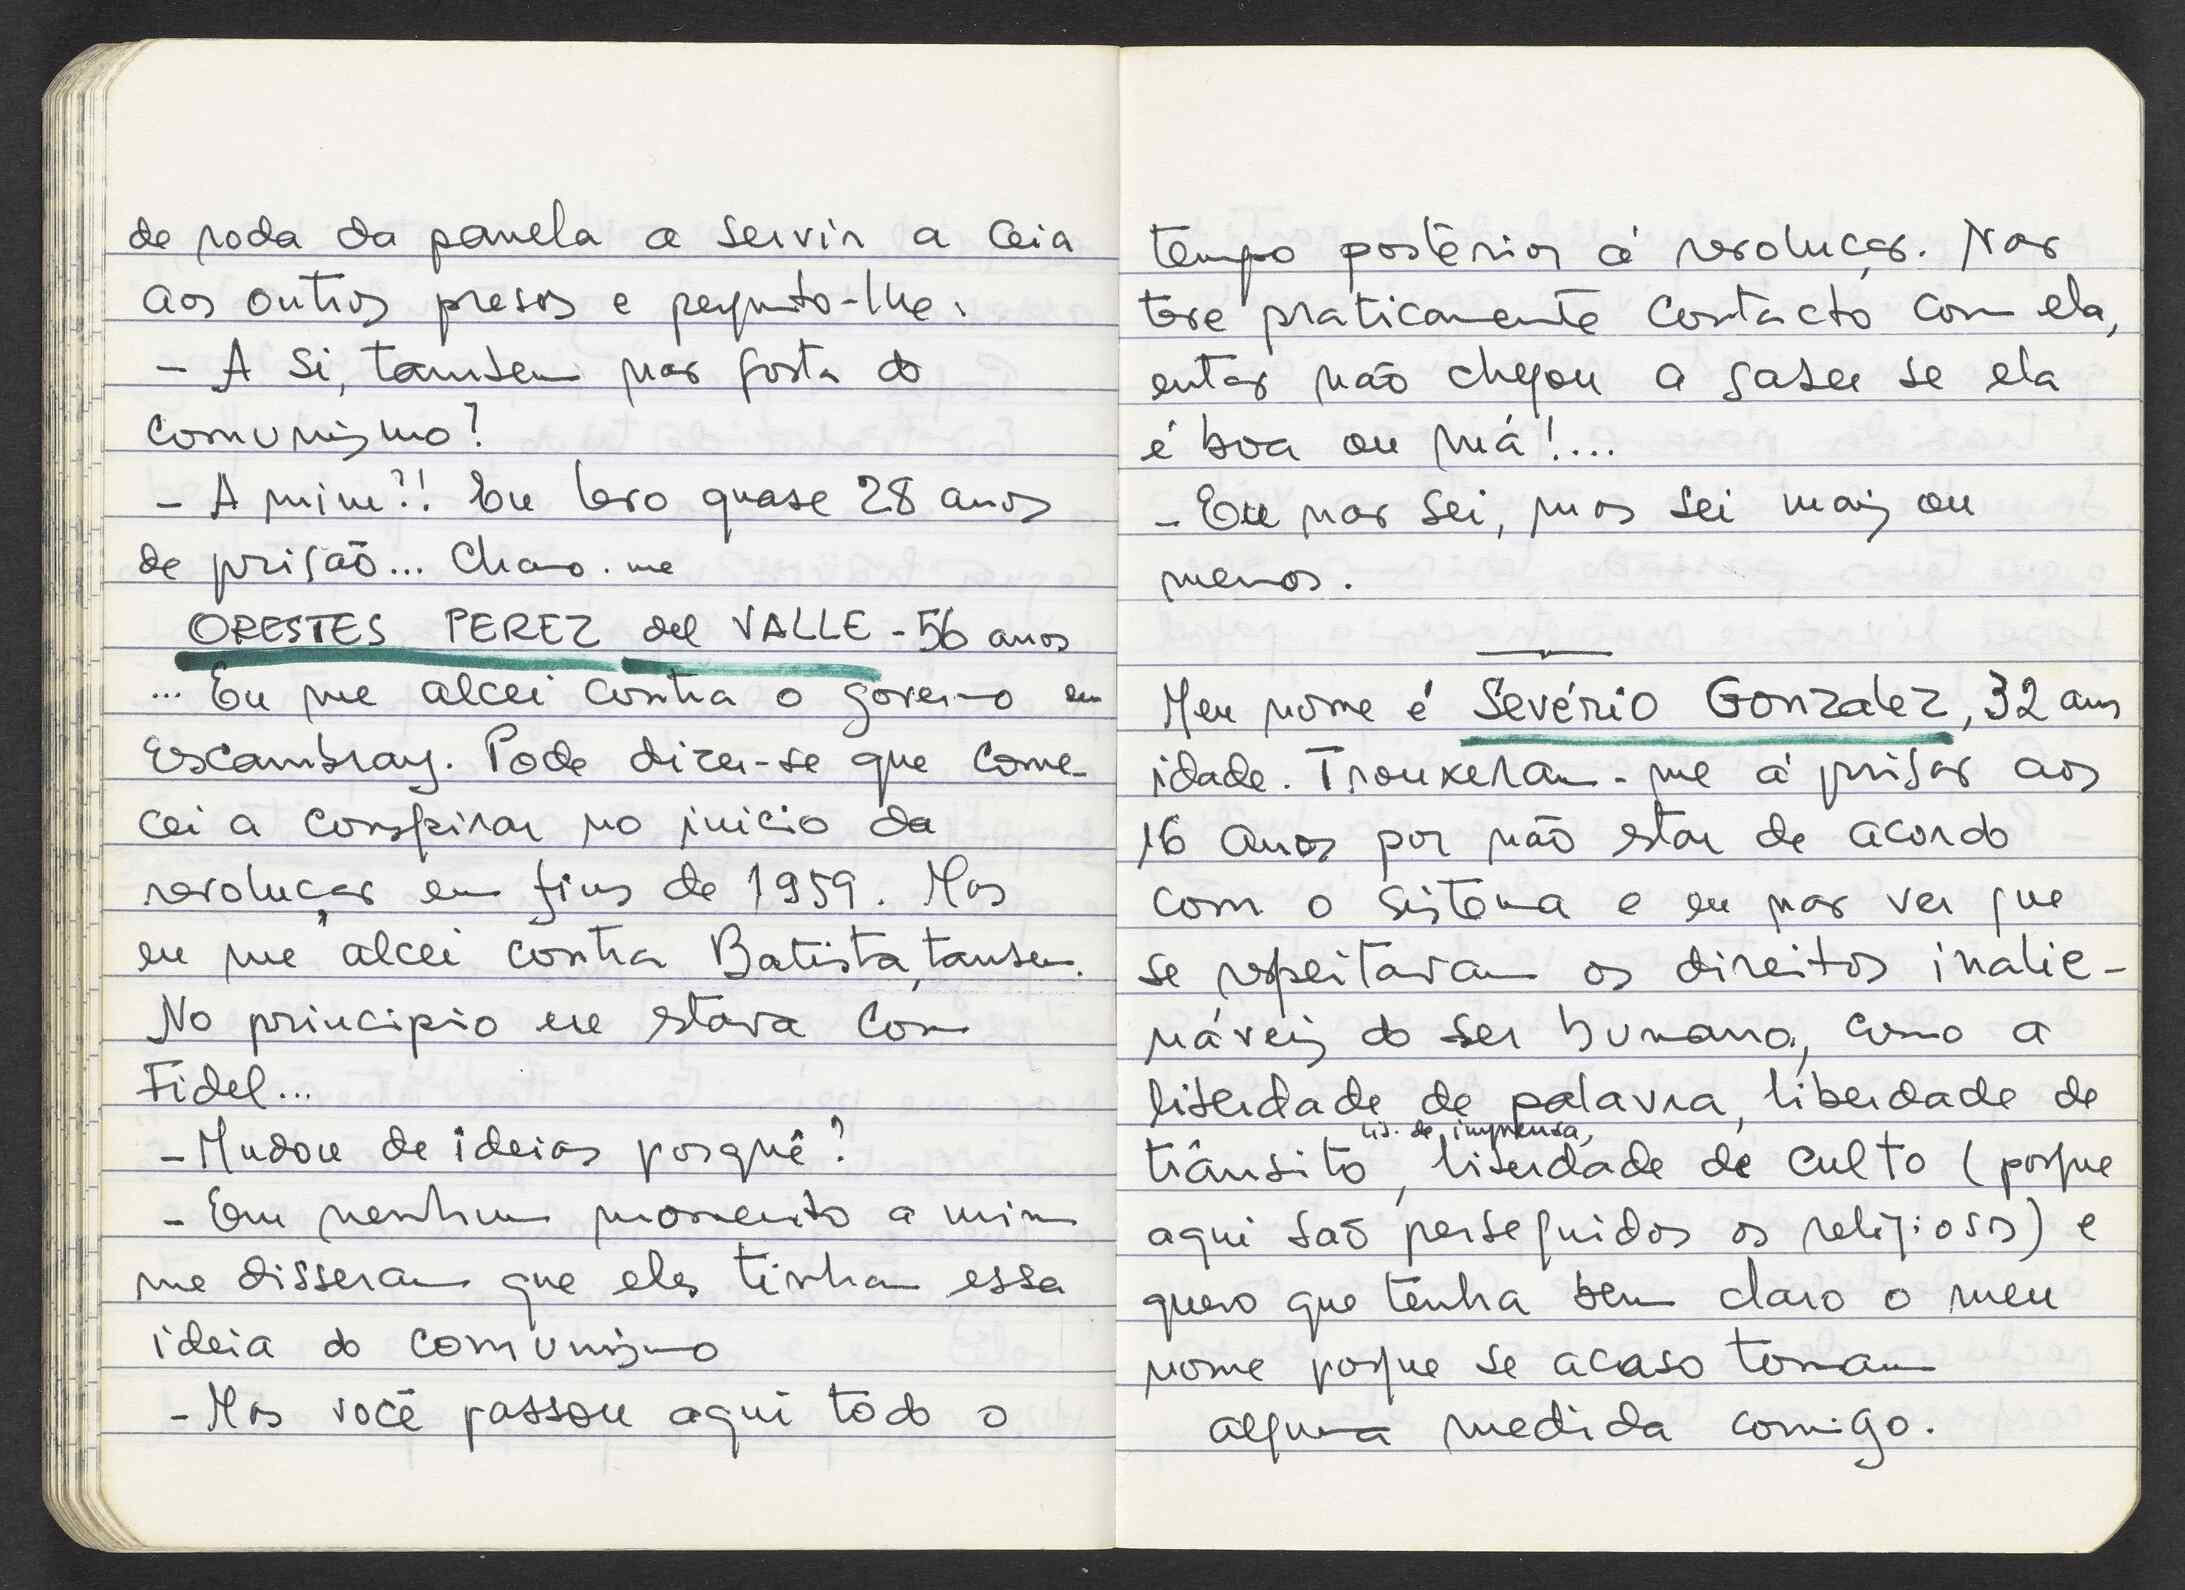 de roda da panela a servir a ceia
aos outros presos e pergunto-lhe.
- A si, tambem não gosta do
comunismo?
- A mim?! Eu levo quase 28 anos
de prisão... Chamo-me
ORESTES PEREZ del VALLE - 56 anos
... Eu me alcei contra o governo em
Escambray. Pode dizer-se que come-
cei a conspirar no inicio da
revolução em fins de 1959. Mas
eu me alcei contra Batista, tambem.
No principio eu estava com
Fidel...
- Mudou de ideias porquê?
- Em nenhum momento a mim
me disseram que eles tinham essa
ideia do comunismo
- Mas você passou aqui todo o
tempo postérior á revolução. Não
teve praticamente contacto com ela,
então não chegou a saber se ela
é boa ou má!...
- Eu não sei, mas sei mais ou
menos.
Meu nome é Sevério Gonzalez, 32 anos
idade. Trouxeram-me á prisão aos
16 anos por não estar de acordo
com o sistema e eu não ver que
se respeitavam os direitos inalie-
náveis do ser humano, como a
liberdade de palavra, liberdade de
lib. de imprensa,
trânsito, liberdade de culto (porque
aqui são perseguidos os religiosos) e
quero que tenha bem claro o meu
nome porque se acaso tomam
alguma medida comigo.